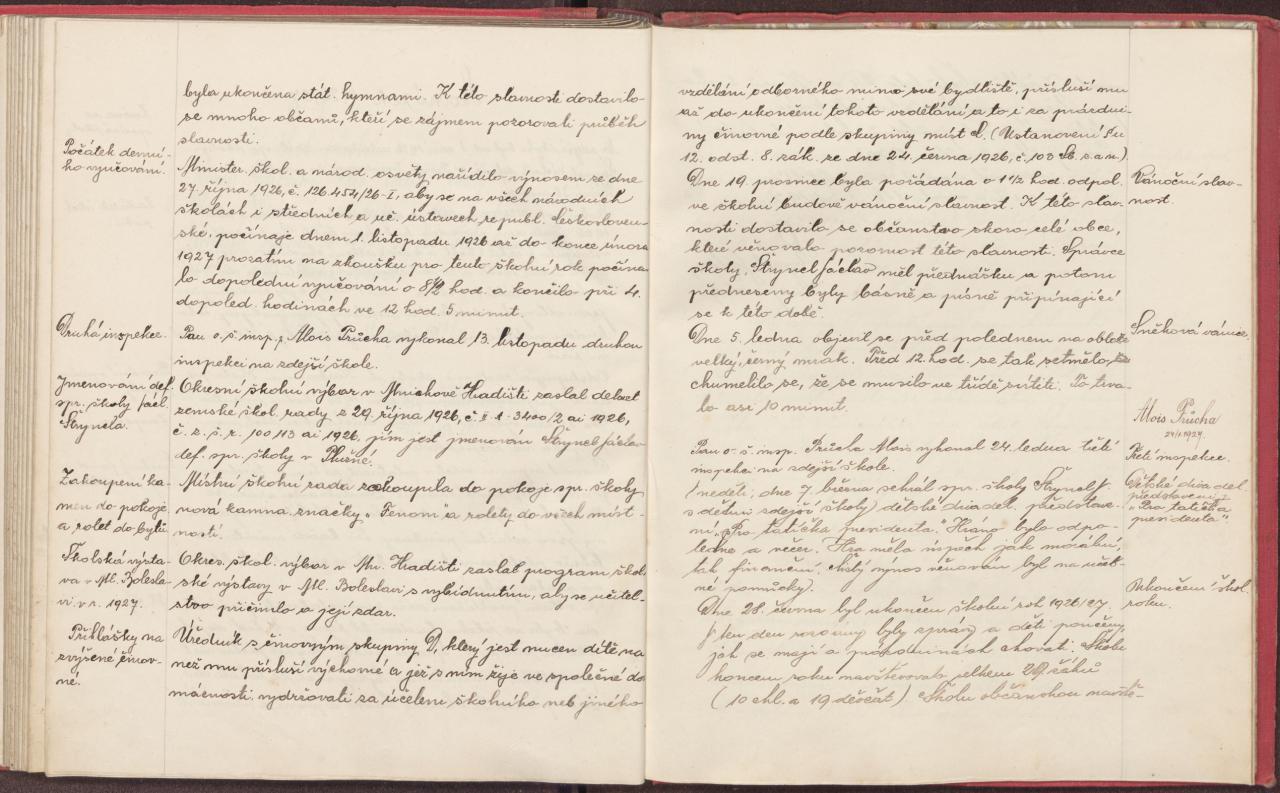 byla ukončena stát. hymnami. K této slavnosti dostavilo
se mnoho občanů, kteří se zájmem pozorovali průběh
slavnosti.
Počátek denní-
ho vyučování.
Minister. škol. a národ. osvěty nařídilo výnosem ze dne
27. října 1926, č. 126.454/26-I, aby se na všech národních
školách i středních a uč. ústavech republ. českosloven-
ské, počínaje dnem 1. listopadu 1926 až do konce února
1927 prozatím na zkoušku pro tento školní rok počína-
lo dopolední vyučování o 8 1/2 hod. a končilo při 4.
dopoled. hodinách ve 12 hod. 5 minut.
Druhá inspekce.
Pan o. š. insp. Alois Průcha vykonal 13. listopadu druhou
inspekci na zdejší škole.
Jmenování def.
spr. školy Václ.
Štrynela.
Okresní školní výbor v Mnichově Hradišti zaslal dekret
zemské škol. rady z 29. října 1926, č. II-1-3400/2 ai 1926,
č. z. š. r. 100113 ai 1926, jím jest jmenován Štrynel Václav
def. spr. školy v Plužné.
Zakoupení ka-
men do pokoje
a rolet do bytu
Místní školní rada zakoupila do pokoje spr. školy
nová kamna značky "Fenom" a rolety do všech míst-
ností.
Školská výsta-
va v Ml. Bolesla-
vi v r. 1927.
Okres. škol. výbor v Mn. Hradišti zaslal program škol-
ské výstavy v Ml. Boleslavi s vybídnutím, aby se učitel-
stvo přičinilo o její zdar.
Přihlášky na
zvýšené činov-
né.
Úředník s činovným skupiny D, který jest nucen dítě na
něž mu přísluší výchovné a jež s ním žije ve společné do-
mácnosti. vydržovati za účelem školního neb jiného
vzdělání odborného mimo své bydliště, přísluší mu
až do ukončení tohoto vzdělání a to i za prázdni-
ny činovné podle skupiny míst
12. odst. 8. zák. ze dne 24. června 1926, č. 103 Sb. z. a n.)
Vánoční slav-
nost.
Dne 19. prosince byla pořádána o 1 1/2 hod. odpol.
ve školní budově vánoční slavnost. K této slav-
nosti dostavilo se občanstvo skoro celé obce,
které věnovalo pozornost této slavnosti. Správce
školy, Štrynel Václav měl přednášku a potom
předneseny byly básně a písně připínající
se k této době.
Sněhová vánice.
Dne 5. ledna objevil se před polednem na obloze
velký, černý mrak. Před 12. hod. se tak setmělo,
chumelilo se, že se musilo ve třídě svítiti. To trva-
lo asi 10 minut.
Alois Průcha
24/I.1927.
Třetí inspekce.
Pan o. š. insp. Průcha Alois vykonal 24. ledna třetí
inspekci na zdejší škole.
Dětské divadel.
představení
"Pro tatíčka
presidenta".
V neděli, dne 7. března sehrál spr. školy Štrynel V.
s dětmi zdejší školy) dětské divadel. představe-
ní "Pro tatíčka presidenta." Hráno bylo odpo-
ledne a večer. Hra měla úspěch jak morální,
tak finanční. Čistý výnos věnován byl na učeb-
né pomůcky).
Zakončení škol.
roku.
Dne 28. června byl ukončen školní rok 1926/27.
V ten den rozdány byly zprávy a děti poučeny,
jak se mají o prázdninách chovati. Školu
koncem roku navštěvovalo celkem 29 žáků
(10 chl. a 19 děvčat). Školu občanskou navště-